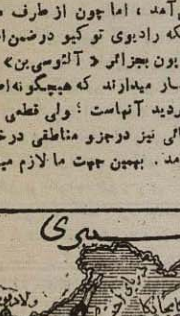 آمد ، اما چون از طرف
که رادیوی توکیو درضمن
یون بجزائر « آلئوسین »
دار میدارند که هیچگونه
ردید آنهاست ؛ ولی قطعی
الی نیز درجزو مناطقی در
مد . بهمین جهت ما لازم می
سیبری